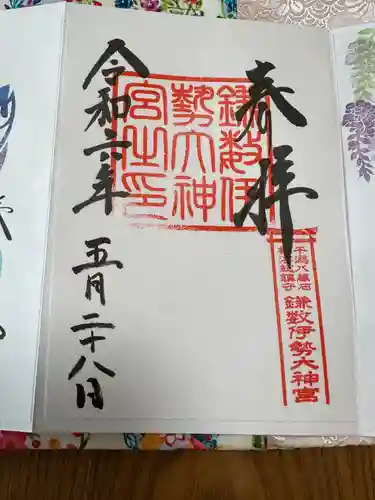 奉拝
鎌数伊
勢大神
宮之印
干潟八萬石
総鎮守
鎌数伊勢大神宮
令和六年
五月二十八日